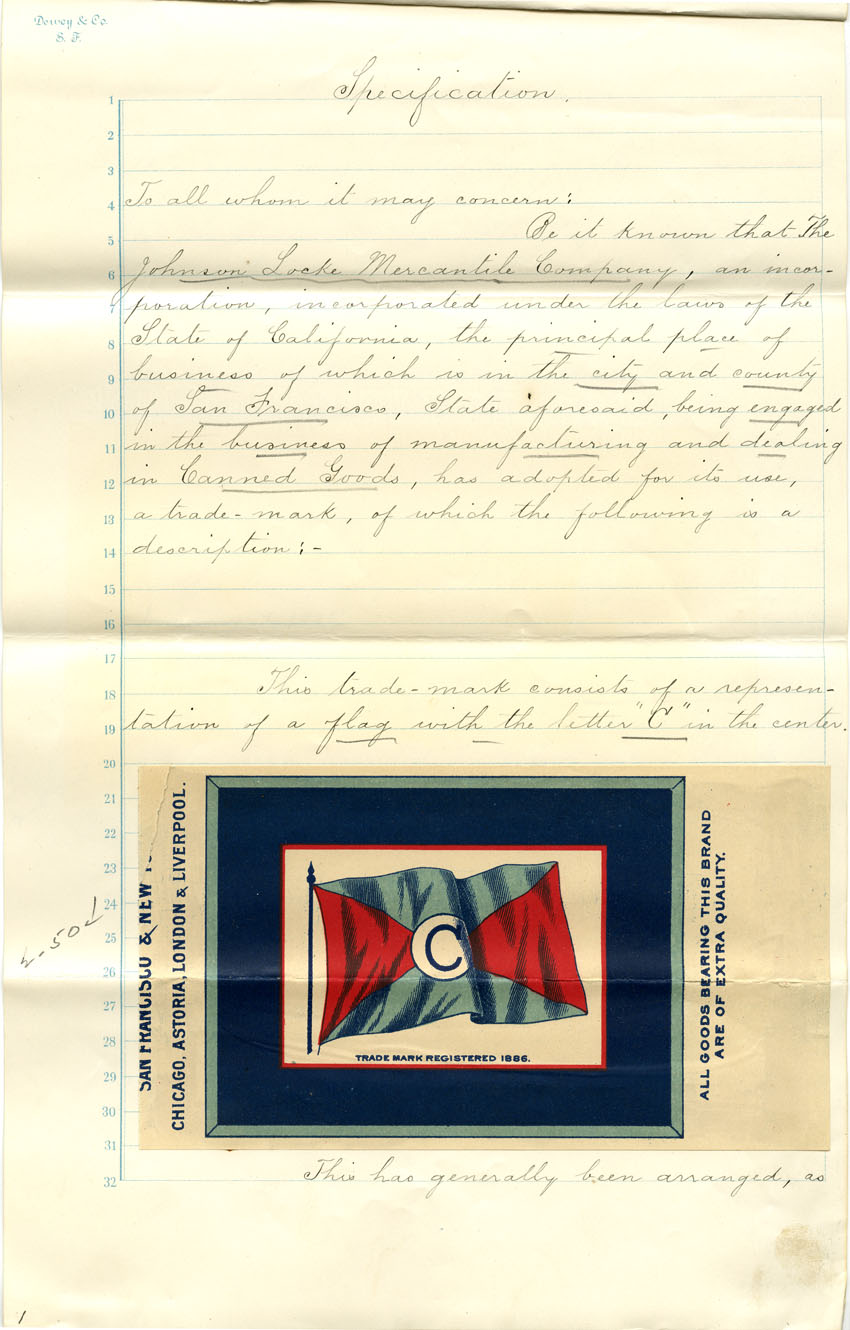 Dewey & Co.
S. F.
Specification.
1
2
3
4 To all whom it may concern:
5 Be it known that The
6 Johnson Locke Mercantile Company, an incor-
7 poration, incorporated under the laws of the
8 State of California, the principal place of
9 business of which is in the city and county
10 of San Francisco, State aforesaid, being engaged
11 in the business of manufacturing and dealing
12 in Canned Goods, has adopted for its use,
13 a trade-mark, of which the following is a
14 description:-
15
16
17
18 This trade-mark consists of a represen-
19 tation of a flag with the letter "C" in the center.
20
21
22
23
24
25
26
27
28
29
30
31
SAN FRANCISCO & NEW
CHICAGO, ASTORIA, LONDON & LIVERPOOL.
C
TRADE MARK REGISTERED 1886.
ALL GOODS BEARING THIS BRAND
ARE OF EXTRA QUALITY.
32 This has generally been arranged, as
1